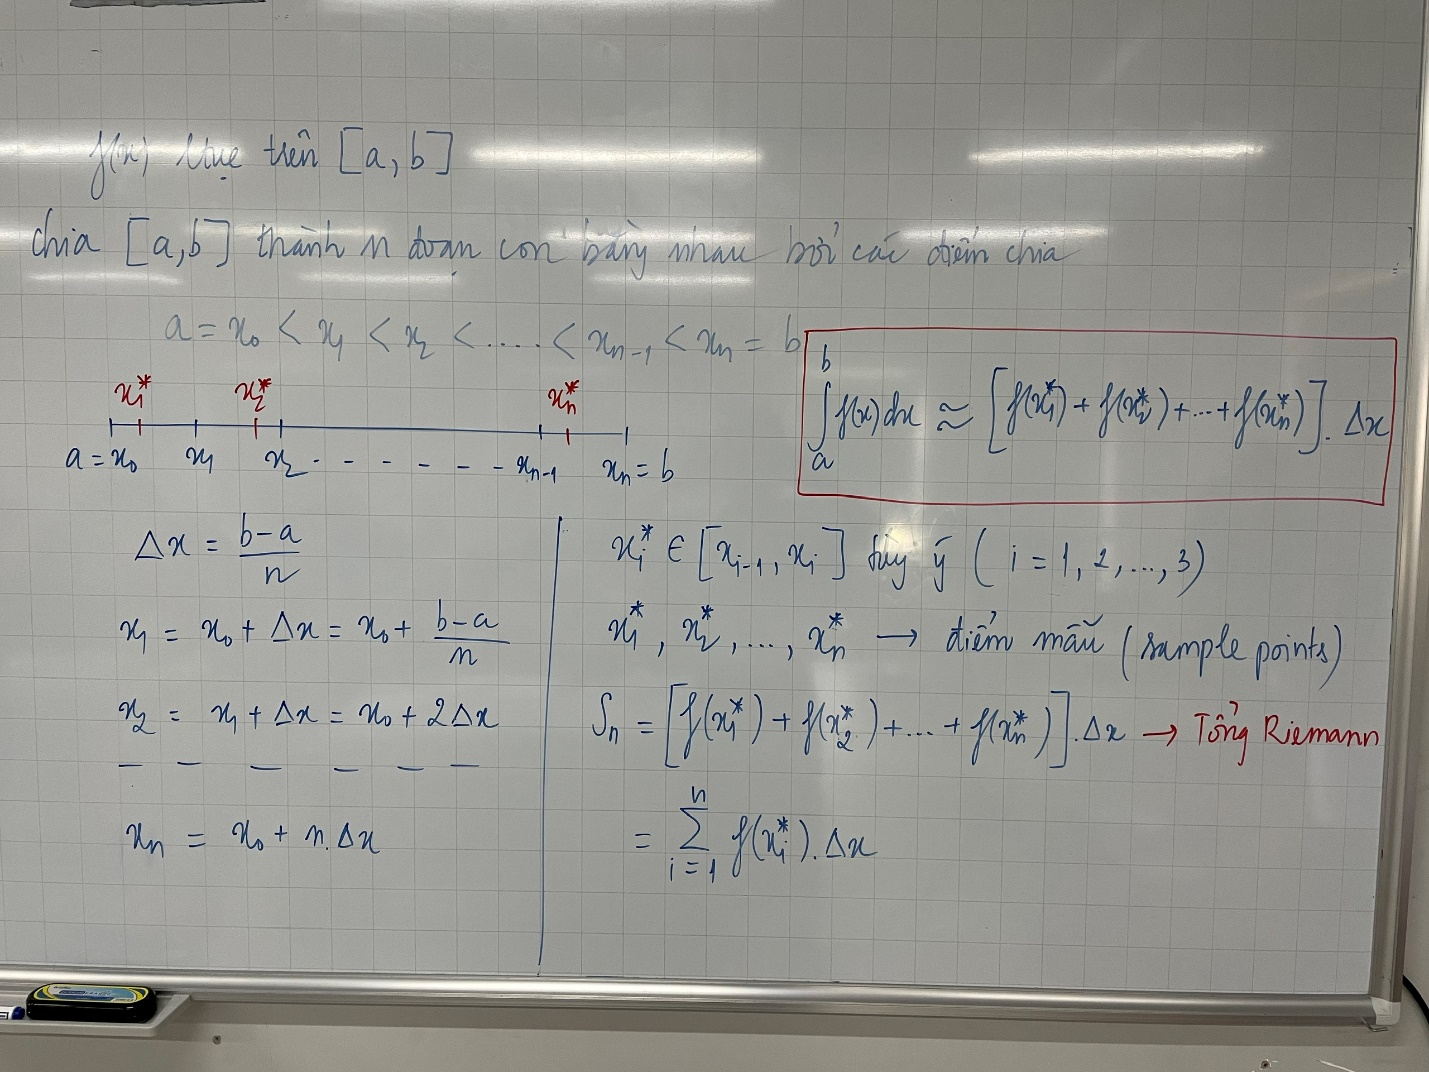 f(x) ltục trên [a, b]
chia [a, b] thành n đoạn con bằng nhau bởi các điểm chia
a = x₀ < x₁ < x₂ < ..... < xₙ₋₁ < xₙ = b
x₁* x₂* xₙ*
a = x₀ x₁ x₂ - - - - - - - xₙ₋₁ xₙ = b
∫ₐᵇ f(x)dx ≈ [f(x₁*) + f(x₂*) + ... + f(xₙ*)] . Δx
Δx = (b-a)/n
x₁ = x₀ + Δx = x₀ + (b-a)/n
x₂ = x₁ + Δx = x₀ + 2Δx
— — — — — —
xₙ = x₀ + n.Δx
xᵢ* ∈ [xᵢ₋₁, xᵢ] tùy ý ( i = 1, 2, ..., 3)
x₁*, x₂*, ..., xₙ* → điểm mẫu (sample points)
Sₙ = [f(x₁*) + f(x₂*) + ... + f(xₙ*)] . Δx → Tổng Riemann
= ∑ᵢ₌₁ⁿ f(xᵢ*) . Δx